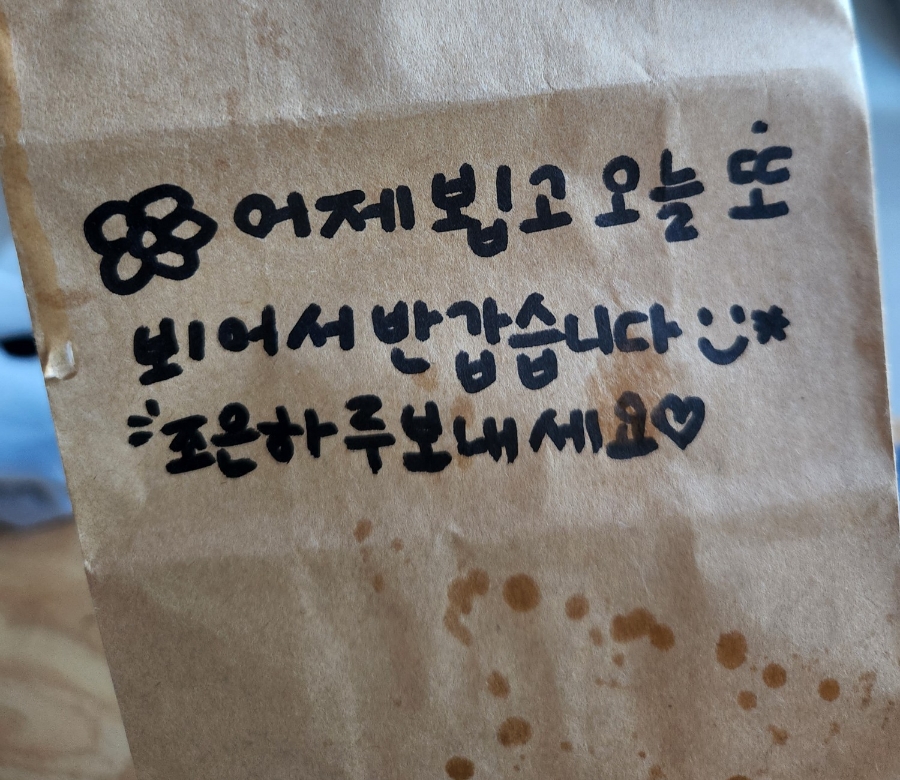 어제 뵙고 오늘 또
뵈어서 반갑습니다 :)*
조은하루보내세요♡